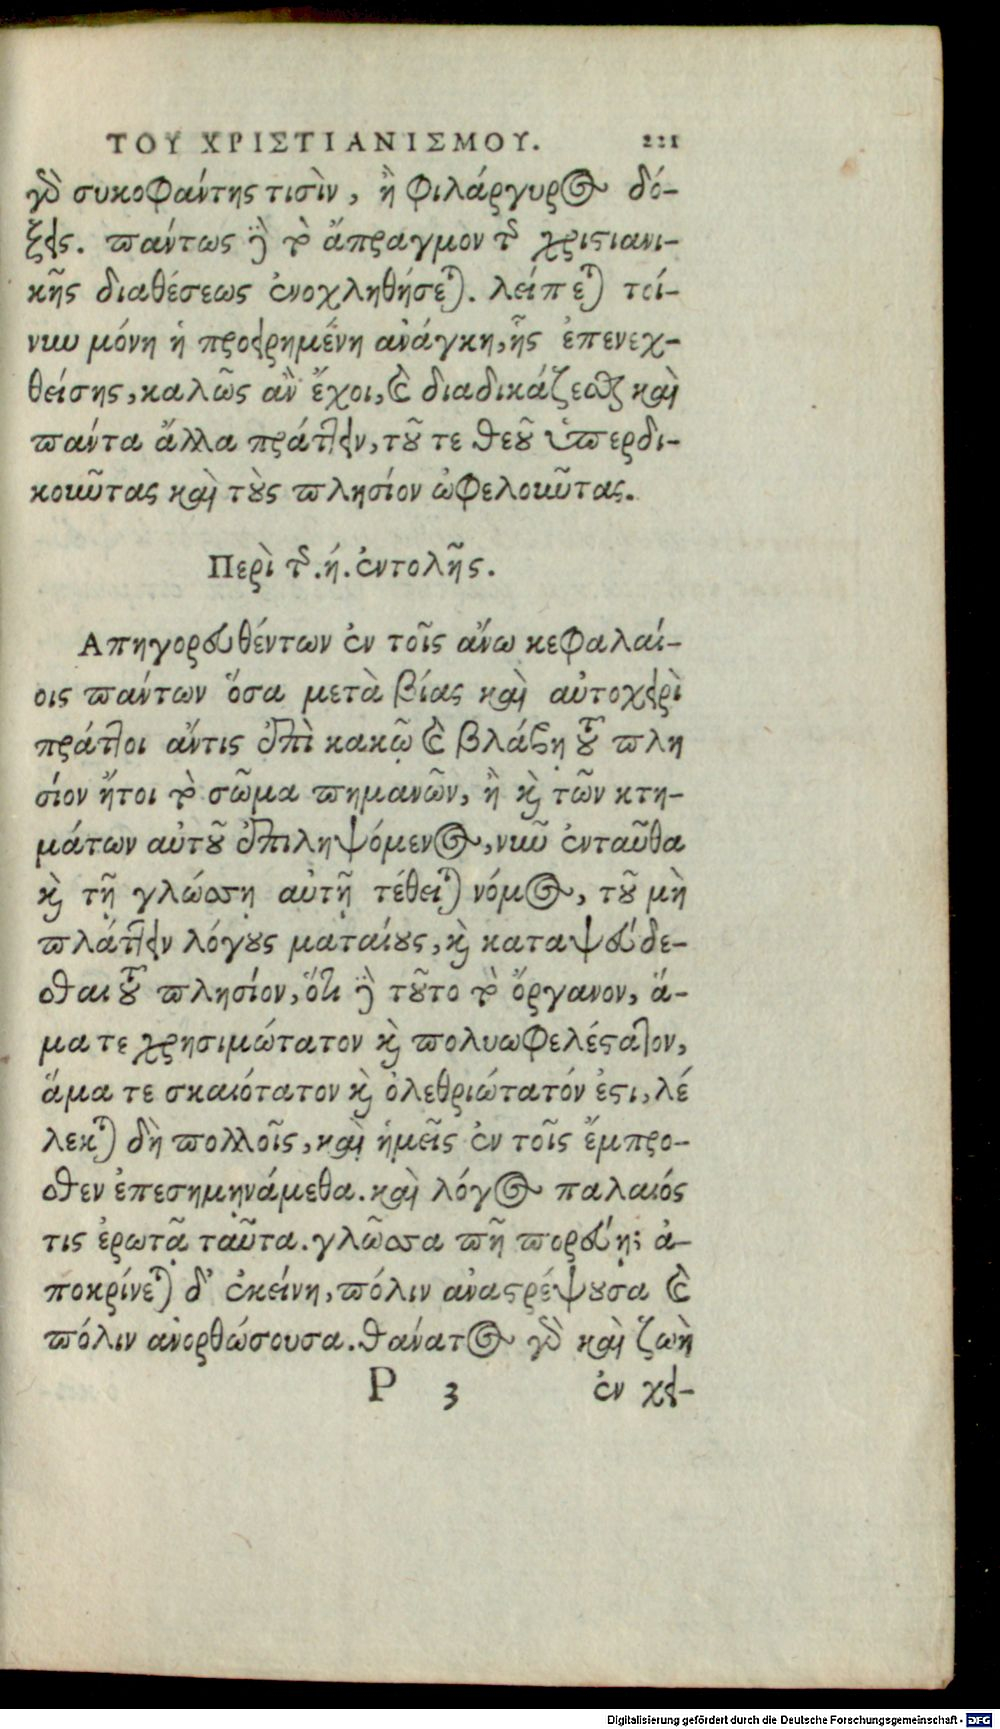 ΤΟΥ ΧΡΙΣΤΙΑΝΙΣΜΟΥ. 221
γὰρ συκοφάντης τισὶν, ἢ φιλάργυρος δό-
ξεις. πάντως δὲ τὸ ἄπραγμον τῆς χριστιανι-
κῆς διαθέσεως ἐνοχληθήσεται. λείπεται τοί-
νυν μόνη ἡ προειρημένη ἀνάγκη, ἧς ἐπενεχ-
θείσης, καλῶς ἂν ἔχοι, καὶ διαδικάζεσθαι καὶ
πάντα ἄλλα πράττειν, τοῦ τε θεοῦ ὑπερδι-
κοῦντας καὶ τοὺς πλησίον ὠφελοῦντας.
Περὶ τῆς .ή. ἐντολῆς.
Απηγορευθέντων ἐν τοῖς ἄνω κεφαλαί-
οις πάντων ὅσα μετὰ βίας καὶ αὐτοχειρὶ
πράττοι ἄντις ἐπὶ κακῷ καὶ βλάβῃ τοῦ πλη
σίον ἤτοι τὸ σῶμα πημανῶν, ἢ καὶ τῶν κτη-
μάτων αὐτοῦ ἐπιληψόμενος, νῦν ἐνταῦθα
καὶ τῇ γλώσσῃ αὐτῇ τέθειται νόμος, τοῦ μὴ
πλάττειν λόγους ματαίους, καὶ καταψεύδε-
σθαι τοῦ πλησίον, ὅτι δὲ τοῦτο τὸ ὄργανον, ἅ-
μα τε χρησιμώτατον καὶ πολυωφελέστατον,
ἅμα τε σκαιότατον καὶ ὀλεθριώτατόν ἐστι, λέ
λεκται δὴ πολλοῖς, καὶ ἡμεῖς ἐν τοῖς ἔμπρο-
σθεν ἐπεσημηνάμεθα. καὶ λόγος παλαιός
τις ἐρωτᾷ ταῦτα. γλῶσσα πῆ πορεύῃ; ἀ-
ποκρίνεται δ' ἐκείνη, πόλιν ἀναστρέψουσα καὶ
πόλιν ἀνορθώσουσα. θάνατος γὰρ καὶ ζωὴ
P 3 ἐν χει-
Digitalisierung gefördert durch die Deutsche Forschungsgemeinschaft - DFG